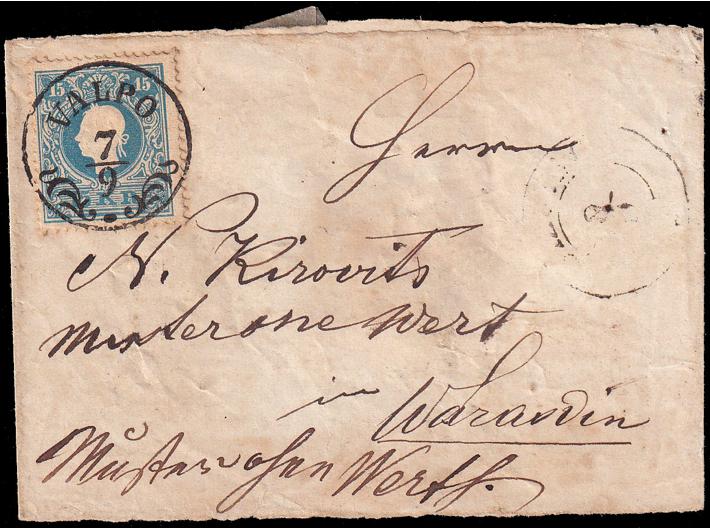 15 15
VALPO
7
9
KR
Herrn
N. Kirovits
Muster one Wert
in Warasdin
Muster ohen Werth.